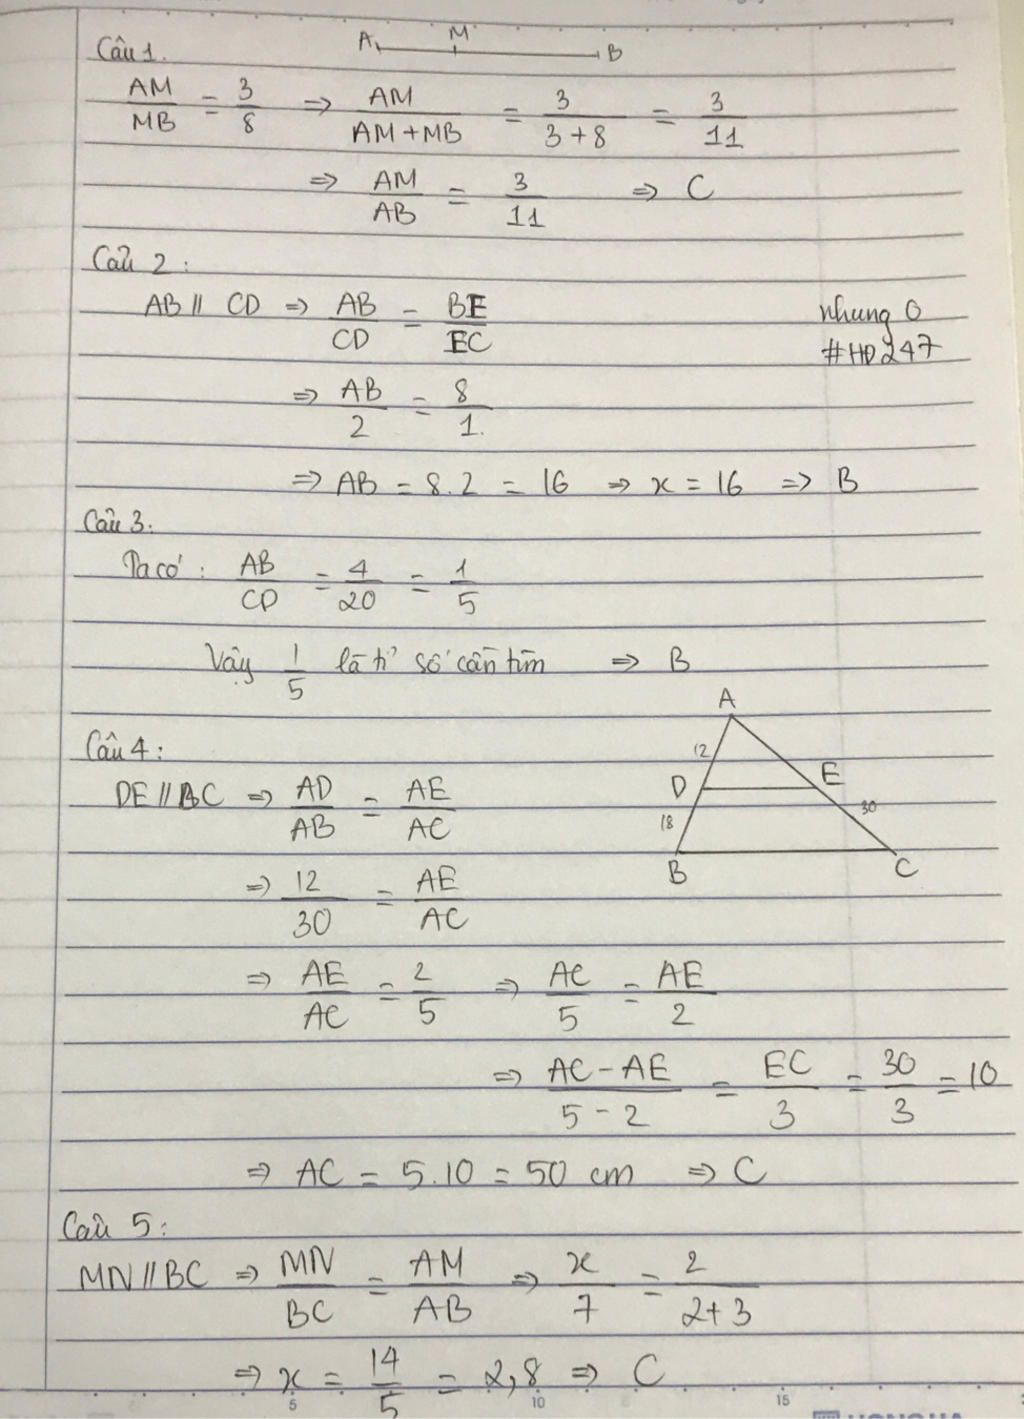 Câu 1.
A M B
AM/MB = 3/8 => AM/(AM+MB) = 3/(3+8) = 3/11
=> AM/AB = 3/11 => C
Câu 2:
AB // CD => AB/CD = BE/EC
nhung 0
#HD247
=> AB/2 = 8/1.
=> AB = 8.2 = 16 => x = 16 => B
Câu 3:
Ta có: AB/CD = 4/20 = 1/5
Vậy 1/5 là tỉ số cần tìm => B
Câu 4:
A
12
D E
18 30
B C
DE // BC => AD/AB = AE/AC
=> 12/30 = AE/AC
=> AE/AC = 2/5 => AC/5 = AE/2
=> (AC - AE)/(5 - 2) = EC/3 = 30/3 = 10
=> AC = 5.10 = 50 cm => C
Câu 5:
MN // BC => MN/BC = AM/AB => x/7 = 2/(2+3)
=> x = 14/5 = 2,8 => C
5 10 15